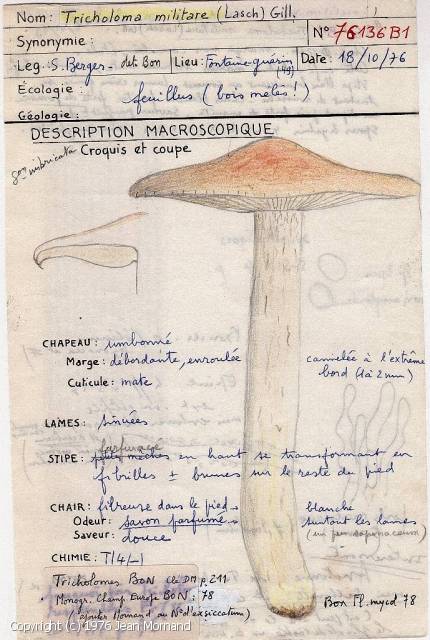 Nom: Tricholoma militare (Lasch) Gill.
N° 76136B1
Synonymie:
Leg. S. Berges - det. Bon Lieu: Fontaine-guérin (49) Date: 18/10/76
Écologie: feuillus (bois mêlés!)
Géologie:
DESCRIPTION MACROSCOPIQUE
Croquis et coupe
imbricata
CHAPEAU: umbonné
Marge: débordante, enroulée cannelée à l'extrême
bord (1 à 2 mm)
Cuticule: mate
LAMES: sinuées
furfuracé
STIPE: petites mèches en haut se transformant en
fibrilles ± brunes sur le reste du pied
CHAIR: fibreuse dans le pied blanche
Odeur: savon parfumé surtout les lames
Saveur: douce (un peu saponaceum)
CHIMIE: Tl4 (-)
Tricholomes BON Clé DM p. 211
• Monogr. Champ Europe BON: 78
(ajouter Mornand au N° d'exsiccatum)
Bon Pl. mycd 78
Copyright (c) 1976 Jean Mornand